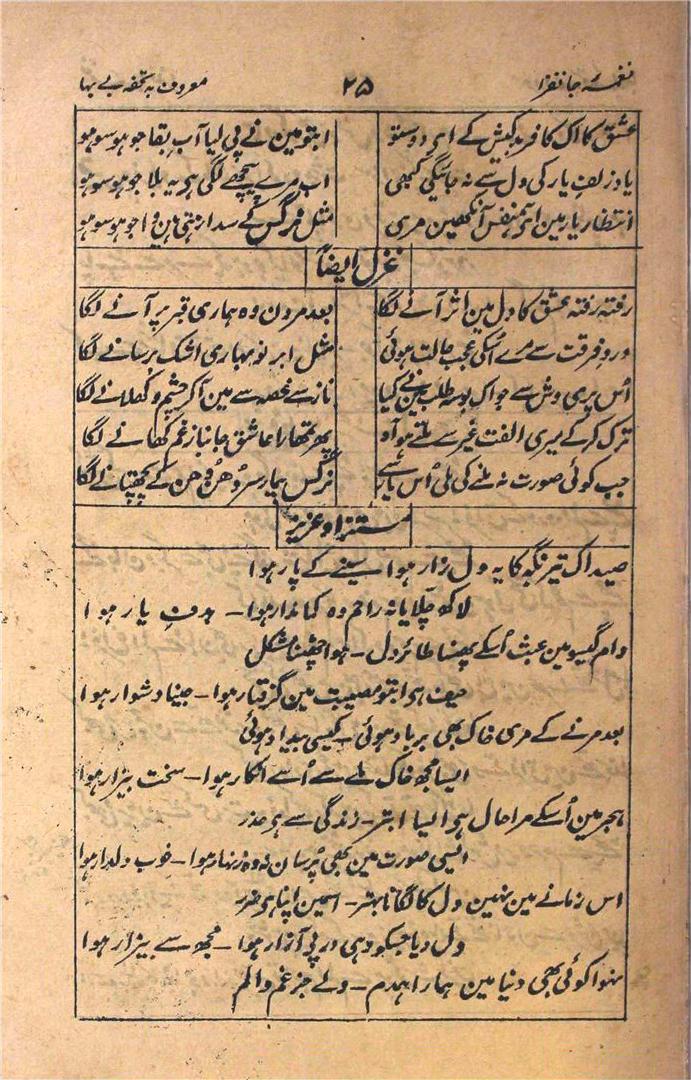 نغمۂ جانفزا ۲۵ معروف بہ تحفہ بے بہا
عشق کا اک کافر بدکیش کے اے دوستو ابتو مین نے پی لیا آب بقا جو ہو سو ہو
یاد زلف یار کی دل سے نہ جائیگی کبھی اب مرے پیچھے لگی ہے یہ بلا جو ہو سو ہو
انتظار یار مین اے ہمنفس آنکھین مری مثل نرگس کے سدا رہتی ہین وا جو ہو سو ہو
غزل ایضاً
رفتہ رفتہ عشق کا دل مین اثر آنے لگا بعد مردن وہ ہماری قبر پر آنے لگا
درد فرقت سے مرے اُسکی عجب حالت ہوئی مثل ابر نو بہاری اشک برسانے لگا
اُس پری وش سے جو اک بوسہ طلب مین نے کیا ناز سے غصہ سے مین آکر چشم دکھلانے لگا
ترک کرکے میری الفت غیر سے ملتے ہو آہ پھر تمھارا عاشق جانباز غم کھانے لگا
جب کوئی صورت نہ ملنے کی ملی اُس یار سے نرگس بیمار سر دُھن دُھن کے پچھتانے لگا
مستزاد عزیز
صید اک تیر نگہ کا یہ دل زار ہوا سینے کے پار ہوا
لاکھ چلّایا نہ راحم وہ کماندار ہوا - ہدف یار ہوا
دام گیسو مین عبث اُسکے پھنسا طائر دل - ہوا چھٹنا مشکل
حیف ہے ابتو مصیبت مین گرفتار ہوا - جینا دشوار ہوا
بعد مرنے کے مری خاک بھی برباد ہوئی - کیسی بیداد ہوئی
ایسا مجھ خاک ملے سے اُسے انکار ہوا - سخت بیزار ہوا
ہجر مین اُسکے مرا حال ہے ایسا ابتر - زندگی سے ہے حذر
ایسی صورت مین بھی پُرسان نہ وہ زنہار ہوا - خوب دلدار ہوا
اس زمانے مین نہین دل کا لگانا بہتر - اسمین اپنا ہے ضرر
دل دیا جسکو وہی درپئے آزار ہوا - مجھ سے بیزار ہوا
نہوا کوئی بھی دنیا مین ہمارا ہمدم - ولے جز غم و الم